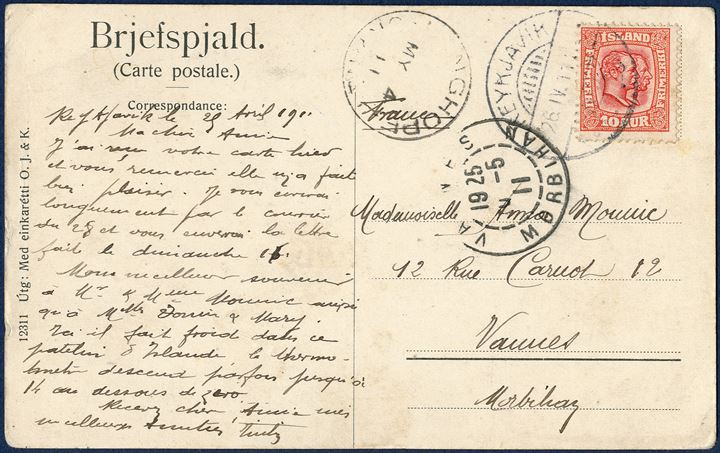 Brjefspjald.
(Carte postale.)
Correspondance:
Reykjavik le 2 Avril 191
J'ai reçu votre carte hier
et vous remercie elle m'a fait
bien plaisir. Je vous
longuement par le courrier
du 28 et vous enverrai la lettre
fait le dimanche
Mon meilleur souvenir
à Mr & Mme Monnic ainsi
qu'à Mlle et Mary.
Ici il fait froid dans ce
patelin d'Islande le thermo-
mètre descend parfois jusqu'à
14 au dessous de zero
Recevez chère Annie mes
meilleures Amitiés
12311 Útg: Med einkarétti O. J. & K.
MY 11
France
REYKJAVIK
26.IV.11
ÍSLAND
FRIMERKI
FRIMERKI
10 AUR
VANNES
MORBIHAN
19 25
5-5
11
Mademoiselle Anna Monnic
12 Rue Carnot 12
Vannes
Morbihan